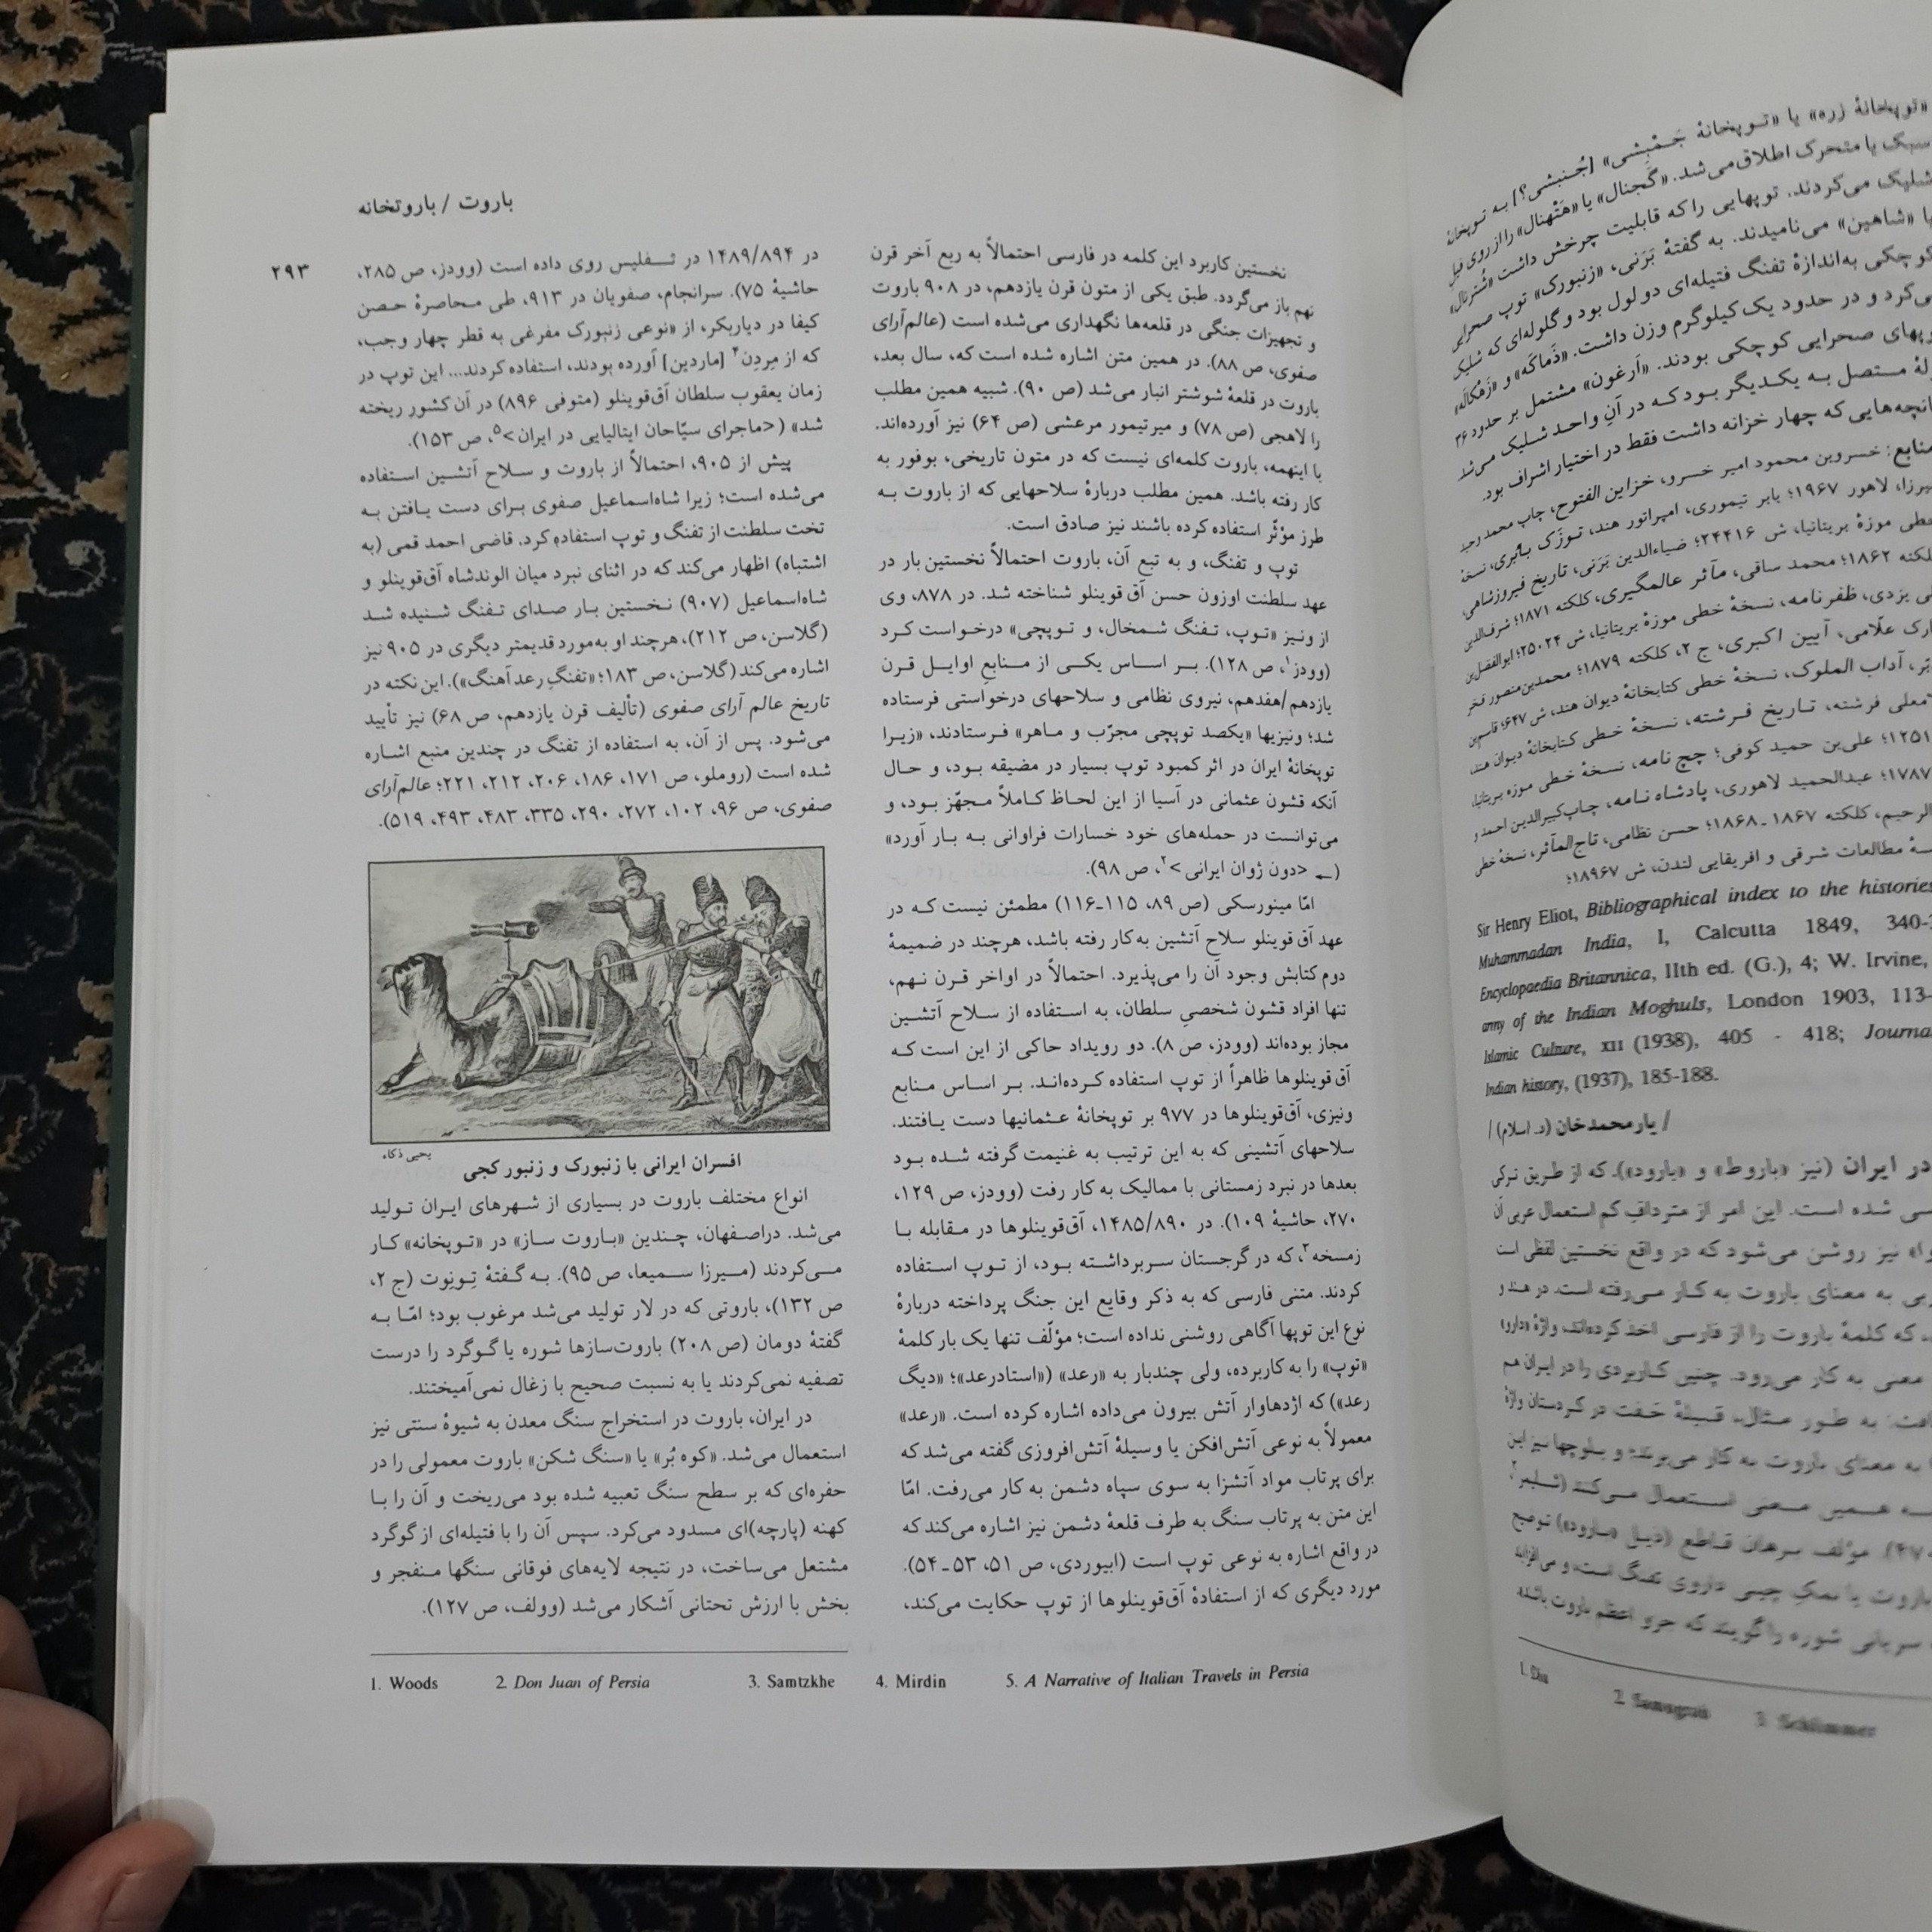 باروت / باروتخانه
۲۹۳
نخستین کاربرد این کلمه در فارسی احتمالاً به ربع آخر قرن
نهم باز می‌گردد. طبق یکی از متون قرن یازدهم، در ۹۰۸ باروت
و تجهیزات جنگی در قلعه‌ها نگهداری می‌شده است (عالم‌آرای
صفوی، ص ۸۸). در همین متن اشاره شده است که، سال بعد،
باروت در قلعهٔ شوشتر انبار می‌شد (ص ۹۰). شبیه همین مطلب
را لاهجی (ص ۷۸) و میرتیمور مرعشی (ص ۶۴) نیز آورده‌اند.
با اینهمه، باروت کلمه‌ای نیست که در متون تاریخی، بوفور به
کار رفته باشد. همین مطلب دربارهٔ سلاحهایی که از باروت به
طرز مؤثّر استفاده کرده باشند نیز صادق است.
توپ و تفنگ، و به تبع آن، باروت احتمالاً نخستین بار در
عهد سلطنت اوزون حسن آق قوینلو شناخته شد. در ۸۷۸، وی
از ونیز «توپ، تفنگ شمخال، و توپچی» درخواست کرد
(وودز۱، ص ۱۲۸). بر اساس یکی از منابع اوایل قرن
یازدهم/هفدهم، نیروی نظامی و سلاحهای درخواستی فرستاده
شد؛ ونیزیها «یکصد توپچی مجرّب و ماهر» فرستادند، «زیرا
توپخانهٔ ایران در اثر کمبود توپ بسیار در مضیقه بود، و حال
آنکه قشون عثمانی در آسیا از این لحاظ کاملاً مجهّز بود، و
می‌توانست در حمله‌های خود خسارات فراوانی به بار آورد»
(← <دون ژوان ایرانی>۲، ص ۹۸).
امّا مینورسکی (ص ۸۹، ۱۱۵ـ۱۱۶) مطمئن نیست که در
عهد آق قوینلو سلاح آتشین به‌کار رفته باشد، هرچند در ضمیمهٔ
دوم کتابش وجود آن را می‌پذیرد. احتمالاً در اواخر قرن نهم،
تنها افراد قشون شخصیِ سلطان، به استفاده از سلاح آتشین
مجاز بوده‌اند (وودز، ص ۸). دو رویداد حاکی از این است که
آق‌قوینلوها ظاهراً از توپ استفاده کرده‌اند. بر اساس منابع
ونیزی، آق‌قوینلوها در ۹۷۷ بر توپخانهٔ عثمانیها دست یافتند.
سلاحهای آتشینی که به این ترتیب به غنیمت گرفته شده بود
بعدها در نبرد زمستانی با ممالیک به کار رفت (وودز، ص ۱۲۹،
۲۷۰، حاشیهٔ ۱۰۹). در ۱۴۸۵/۸۹۰، آق‌قوینلوها در مقابله با
زمسخه۳، که در گرجستان سربرداشته بود، از توپ استفاده
کردند. متنی فارسی که به ذکر وقایع این جنگ پرداخته دربارهٔ
نوع این توپها آگاهی روشنی نداده است؛ مؤلّف تنها یک بار کلمهٔ
«توپ» را به کاربرده، ولی چندبار به «رعد» («استادرعد»؛ «دیگ
رعد») که اژدهاوار آتش بیرون می‌داده اشاره کرده است. «رعد»
معمولاً به نوعی آتش‌افکن یا وسیلهٔ آتش‌افروزی گفته می‌شد که
برای پرتاب مواد آتشزا به سوی سپاه دشمن به کار می‌رفت. امّا
این متن به پرتاب سنگ به طرف قلعهٔ دشمن نیز اشاره می‌کند که
در واقع اشاره به نوعی توپ است (ابیوردی، ص ۵۱، ۵۳ـ۵۴).
مورد دیگری که از استفادهٔ آق‌قوینلوها از توپ حکایت می‌کند،
در ۱۴۸۹/۸۹۴ در تفلیس روی داده است (وودز، ص ۲۸۵،
حاشیهٔ ۷۵). سرانجام، صفویان در ۹۱۳، طی محاصرهٔ حصن
کیفا در دیاربکر، از «نوعی زنبورک مفرغی به قطر چهار وجب،
که از مِردِن۴ [ماردین] آورده بودند، استفاده کردند... این توپ در
زمان یعقوب سلطان آق‌قوینلو (متوفی ۸۹۶) در آن کشور ریخته
شد» (<ماجرای سیّاحان ایتالیایی در ایران>۵، ص ۱۵۳).
پیش از ۹۰۵، احتمالاً از باروت و سلاح آتشین استفاده
می‌شده است؛ زیرا شاه‌اسماعیل صفوی برای دست یافتن به
تخت سلطنت از تفنگ و توپ استفاده کرد. قاضی احمد قمی (به
اشتباه) اظهار می‌کند که در اثنای نبرد میان الوندشاه آق‌قوینلو و
شاه‌اسماعیل (۹۰۷) نخستین بار صدای تفنگ شنیده شد
(گلاسن، ص ۲۱۲)، هرچند او به‌مورد قدیمتر دیگری در ۹۰۵ نیز
اشاره می‌کند (گلاسن، ص ۱۸۳؛ «تفنگِ رعدآهنگ»). این نکته در
تاریخ عالم آرای صفوی (تألیف قرن یازدهم، ص ۶۸) نیز تأیید
می‌شود. پس از آن، به استفاده از تفنگ در چندین منبع اشاره
شده است (روملو، ص ۱۷۱، ۱۸۶، ۲۰۶، ۲۱۲، ۲۲۱؛ عالم‌آرای
صفوی، ص ۹۶، ۱۰۲، ۲۷۲، ۲۹۰، ۳۳۵، ۴۸۳، ۴۹۳، ۵۱۹).
یحیی ذکاء
افسران ایرانی با زنبورک و زنبور کجی
انواع مختلف باروت در بسیاری از شهرهای ایران تولید
می‌شد. دراصفهان، چندین «باروت ساز» در «توپخانه» کار
می‌کردند (میرزا سمیعا، ص ۹۵). به گفتهٔ تِونِوت (ج ۲،
ص ۱۳۲)، باروتی که در لار تولید می‌شد مرغوب بود؛ امّا به
گفتهٔ دومان (ص ۲۰۸) باروت‌سازها شوره یا گوگرد را درست
تصفیه نمی‌کردند یا به نسبت صحیح با زغال نمی‌آمیختند.
در ایران، باروت در استخراج سنگ معدن به شیوهٔ سنتی نیز
استعمال می‌شد. «کوه بُر» یا «سنگ شکن» باروت معمولی را در
حفره‌ای که بر سطح سنگ تعبیه شده بود می‌ریخت و آن را با
کهنه (پارچه)ای مسدود می‌کرد. سپس آن را با فتیله‌ای از گوگرد
مشتعل می‌ساخت، در نتیجه لایه‌های فوقانی سنگها منفجر و
بخش با ارزش تحتانی آشکار می‌شد (وولف، ص ۱۲۷).
1. Woods 2. Don Juan of Persia 3. Samtzkhe 4. Mirdin 5. A Narrative of Italian Travels in Persia
«توپخانهٔ زره» یا «توپخانهٔ جَمْبِشی» [جُنبشی؟] به توپخانهٔ
سبک یا متحرک اطلاق می‌شد. «گَجنال» یا «هَتْهنال» را از روی فیل
شلیک می‌کردند. توپهایی را که قابلیت چرخش داشت «شُترنال»
یا «شاهین» می‌نامیدند. به گفتهٔ بَرَنی، «زنبورک» توپ صحرایی
کوچکی به‌اندازهٔ تفنگ فتیله‌ای دو لول بود و گلوله‌ای که شلیک
می‌کرد و در حدود یک کیلوگرم وزن داشت. «دَماکَه» و
توپهای صحرایی کوچکی بودند. «اَرغون» مشتمل بر حدود ۳۶
لولهٔ متصل به یکدیگر بود که در آنِ واحد شلیک می‌شد
که چهار خزانه داشت فقط در اختیار اشراف بود.
منابع: خسروبن محمود امیر خسرو، خزاین الفتوح، چاپ محمد وحید
میرزا، لاهور ۱۹۶۷؛ بابر تیموری، امپراتور هند، توزَک بابُری، نسخهٔ
خطی موزهٔ بریتانیا، ش ۲۴۴۱۶؛ ضیاءالدین بَرَنی، تاریخ فیروزشاهی،
کلکته ۱۸۶۲؛ محمد ساقی، مآثر عالمگیری، کلکته ۱۸۷۱؛ شرف‌الدین
علی یزدی، ظفرنامه، نسخهٔ خطی موزهٔ بریتانیا، ش ۲۵۰۲۴؛ ابوالفضل‌بن
مبارک علّامی، آیین اکبری، ج ۲، کلکته ۱۸۷۹؛ محمدبن‌منصور فخر
آداب الملوک، نسخهٔ خطی کتابخانهٔ دیوان هند، ش ۶۴۷؛ قاسم‌بن
فرشته، تاریخ فرشته، نسخهٔ خطی کتابخانهٔ دیوان هند،
۱۲۵۱؛ علی‌بن حمید کوفی؛ چچ نامه، نسخهٔ خطی موزه بریتانیا،
۱۷۸۷؛ عبدالحمید لاهوری، پادشاه نامه، چاپ کبیرالدین احمد و
کلکته ۱۸۶۷ـ۱۸۶۸؛ حسن نظامی، تاج‌المآثر، نسخهٔ خطی
مطالعات شرقی و افریقایی لندن، ش ۱۸۹۶۷؛
Sir Henry Eliot, Bibliographical index to the histories
Muhammadan India, I, Calcutta 1849, 340-
Encyclopaedia Britannica, IIth ed. (G.), 4; W. Irvine,
army of the Indian Moghuls, London 1903, 113-
Islamic Culture, XII (1938), 405 - 418; Journa
Indian history, (1937), 185-188.
/ یارمحمدخان (د. اسلام) /
در ایران (نیز «باروط» و «بارود»)، که از طریق ترکی
شده است. این امر از مترادفِ کم استعمال عربی آن
نیز روشن می‌شود که در واقع نخستین لفظی است
به معنای باروت به کار می‌رفته است. در هند و
که کلمهٔ باروت را از فارسی اخذ کرده‌اند، واژهٔ «دارو»
معنی به کار می‌رود. چنین کاربردی را در ایران هم
به طور مثال، قبیلهٔ خفت در کردستان واژهٔ
به معنای باروت به کار می‌برند؛ و بلوچها نیز این
همین معنی استعمال می‌کنند (شلیمر
مؤلف برهان قاطع (ذیل «بارود») توضیح
باروت یا نمکِ چینی داروی تفنگ است، و می‌افزاید
سریانی شوره را گویند که جزو اعظم باروت باشد،
3. Schlimmer